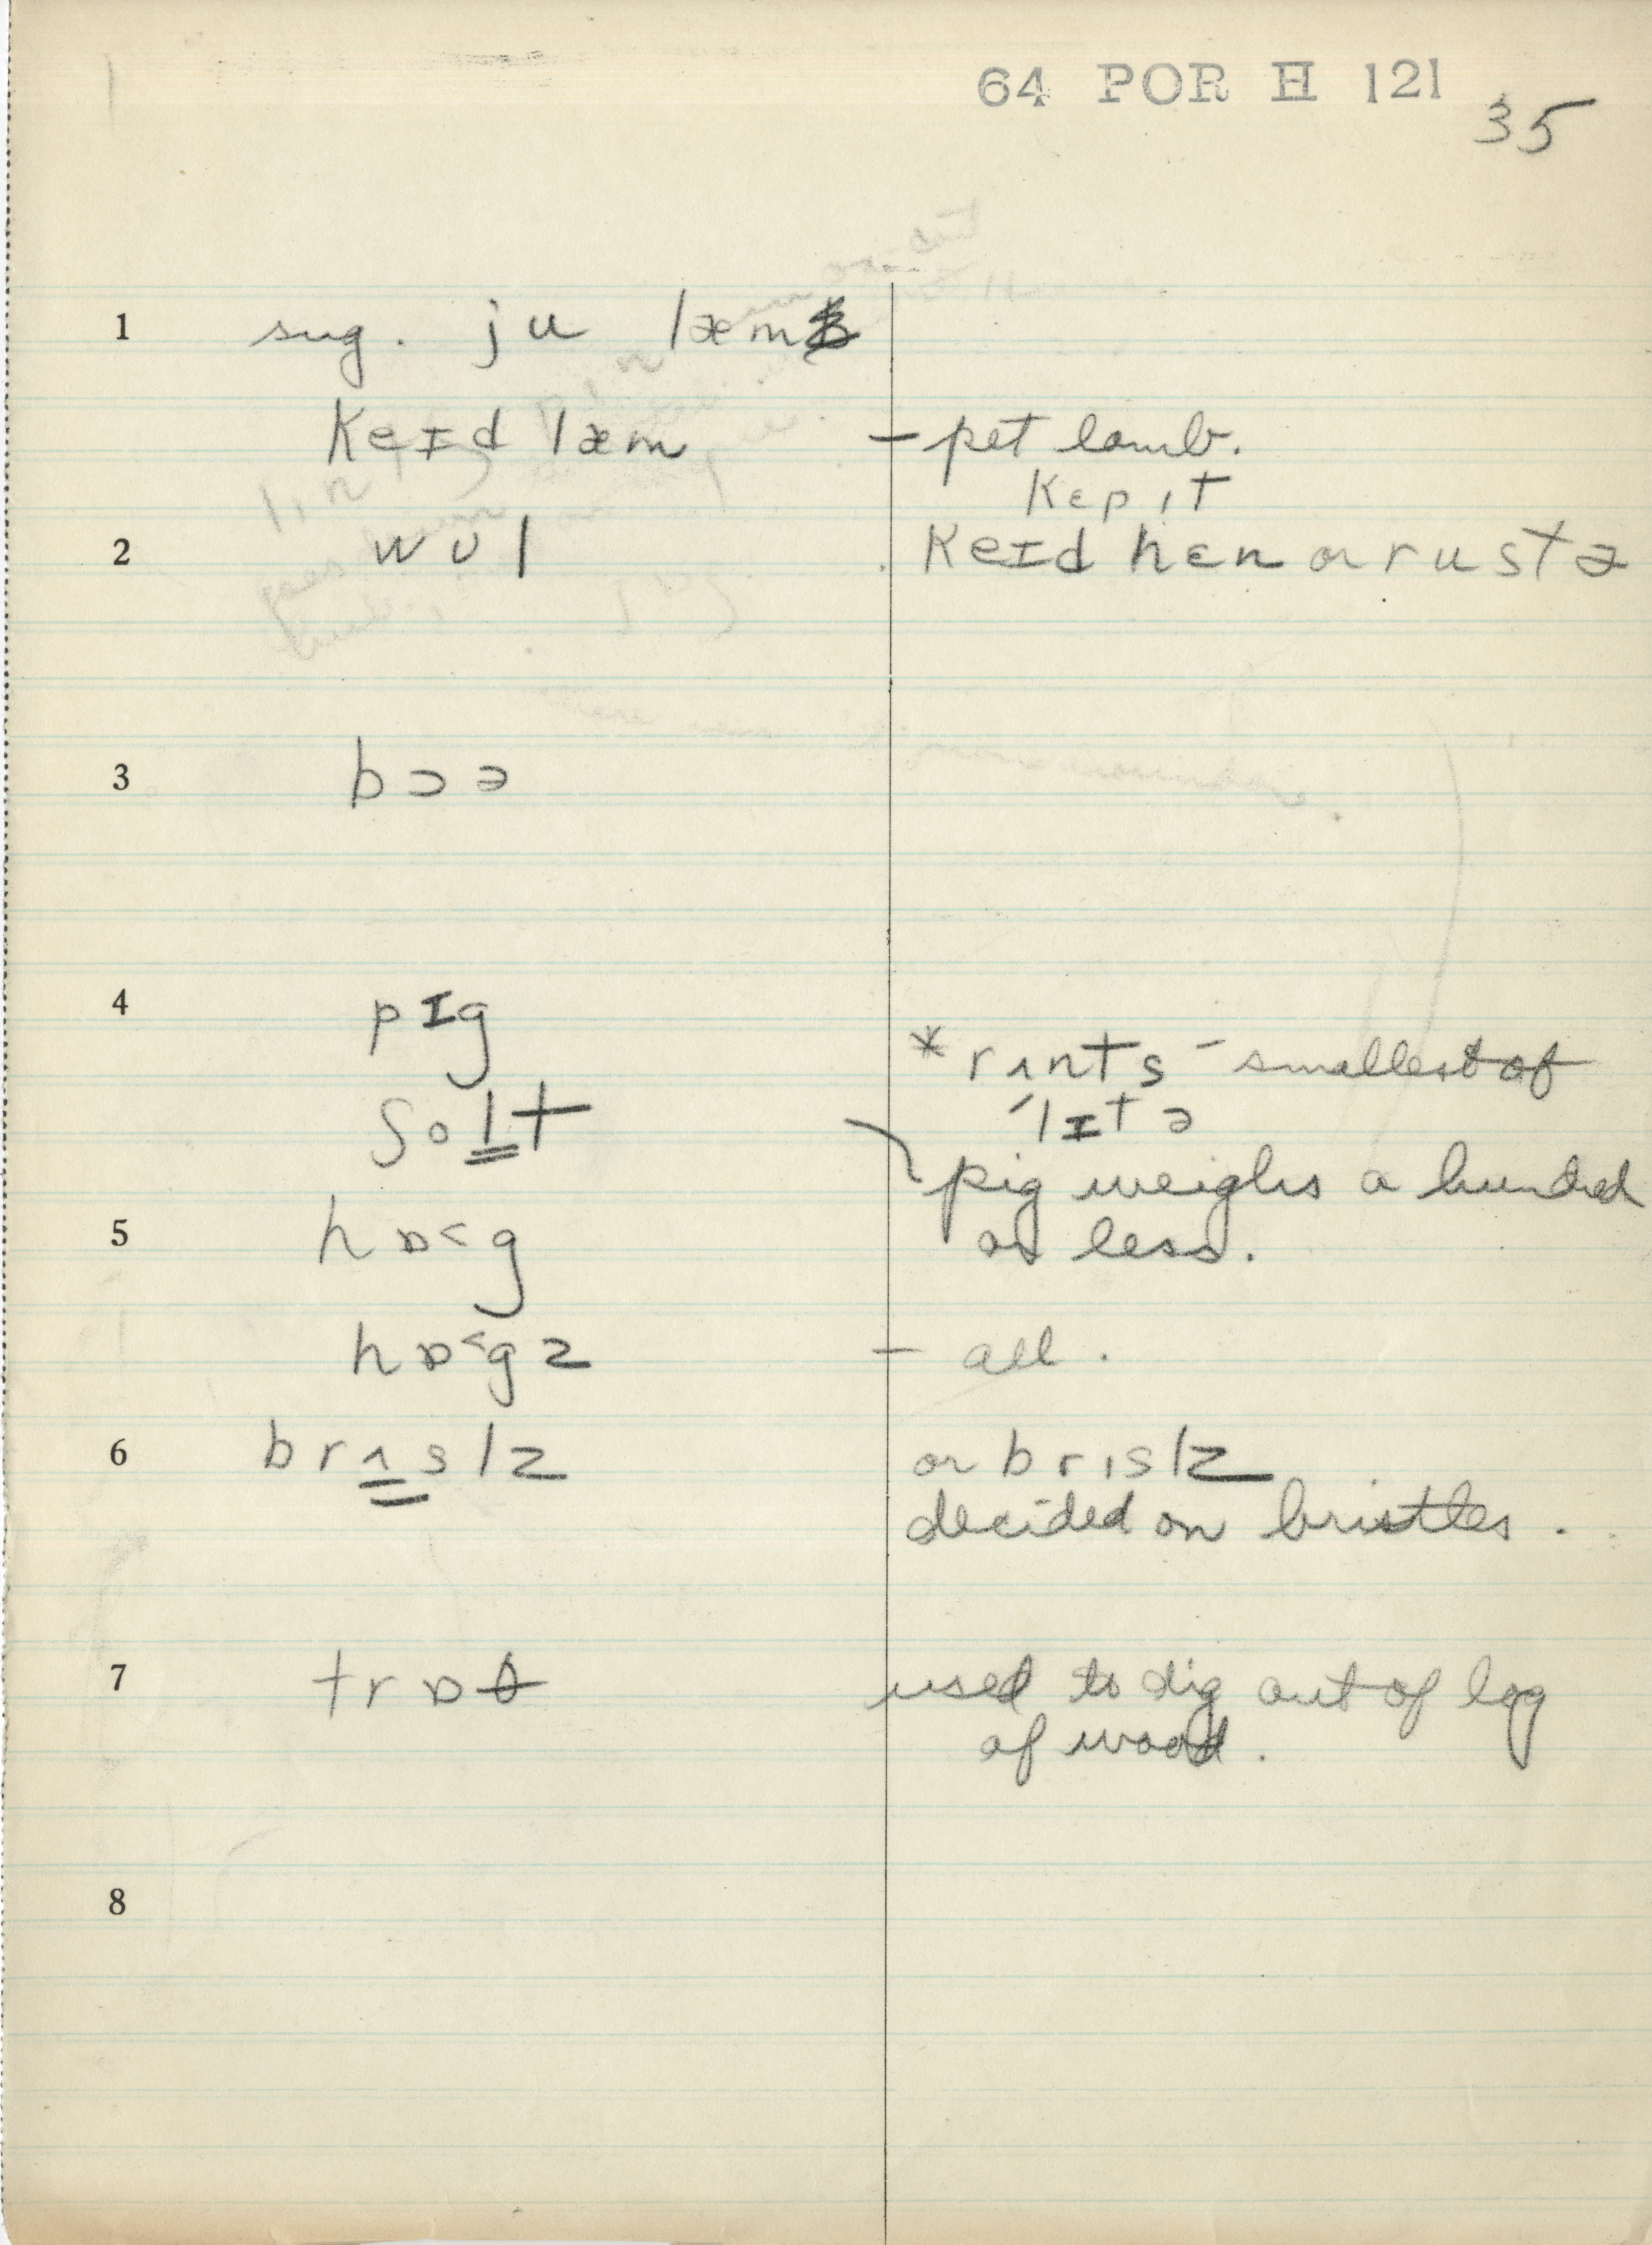 64 POR H 121
35
1 sug. ju læm
keɪd læm – pet lamb.
kɛp ɪt
2 wʊl keɪd hɛn or rustə
3 bɔə
4 pɪg
* rʌnts – smallest of
ʃolt ˈlɪtə
pig weighs a hundred
5 hɒ˂g or less.
hɒ˂gz – all.
6 brʌslz or brɪslz
decided on bristles.
7 trɒθ used to dig out of log
of wood.
8